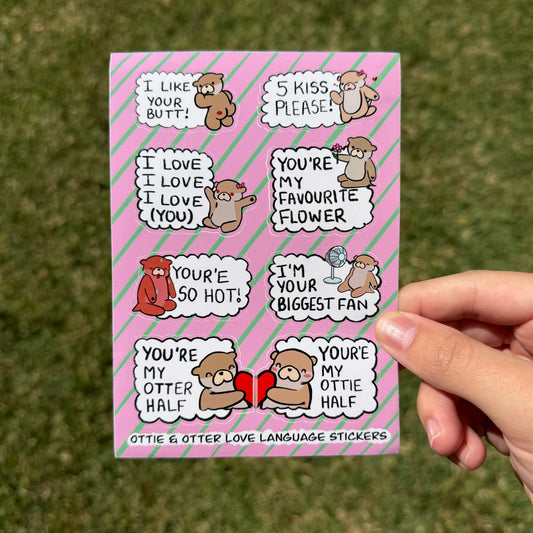 I LIKE
YOUR
BUTT!
5 KISS
PLEASE!
I LOVE
I LOVE
I LOVE
(YOU)
YOU'RE
MY
FAVOURITE
FLOWER
YOUR'E
SO HOT!
I'M
YOUR
BIGGEST FAN
YOU'RE
MY
OTTER
HALF
YOUR'E
MY
OTTIE
HALF
OTTIE & OTTER LOVE LANGUAGE STICKERS